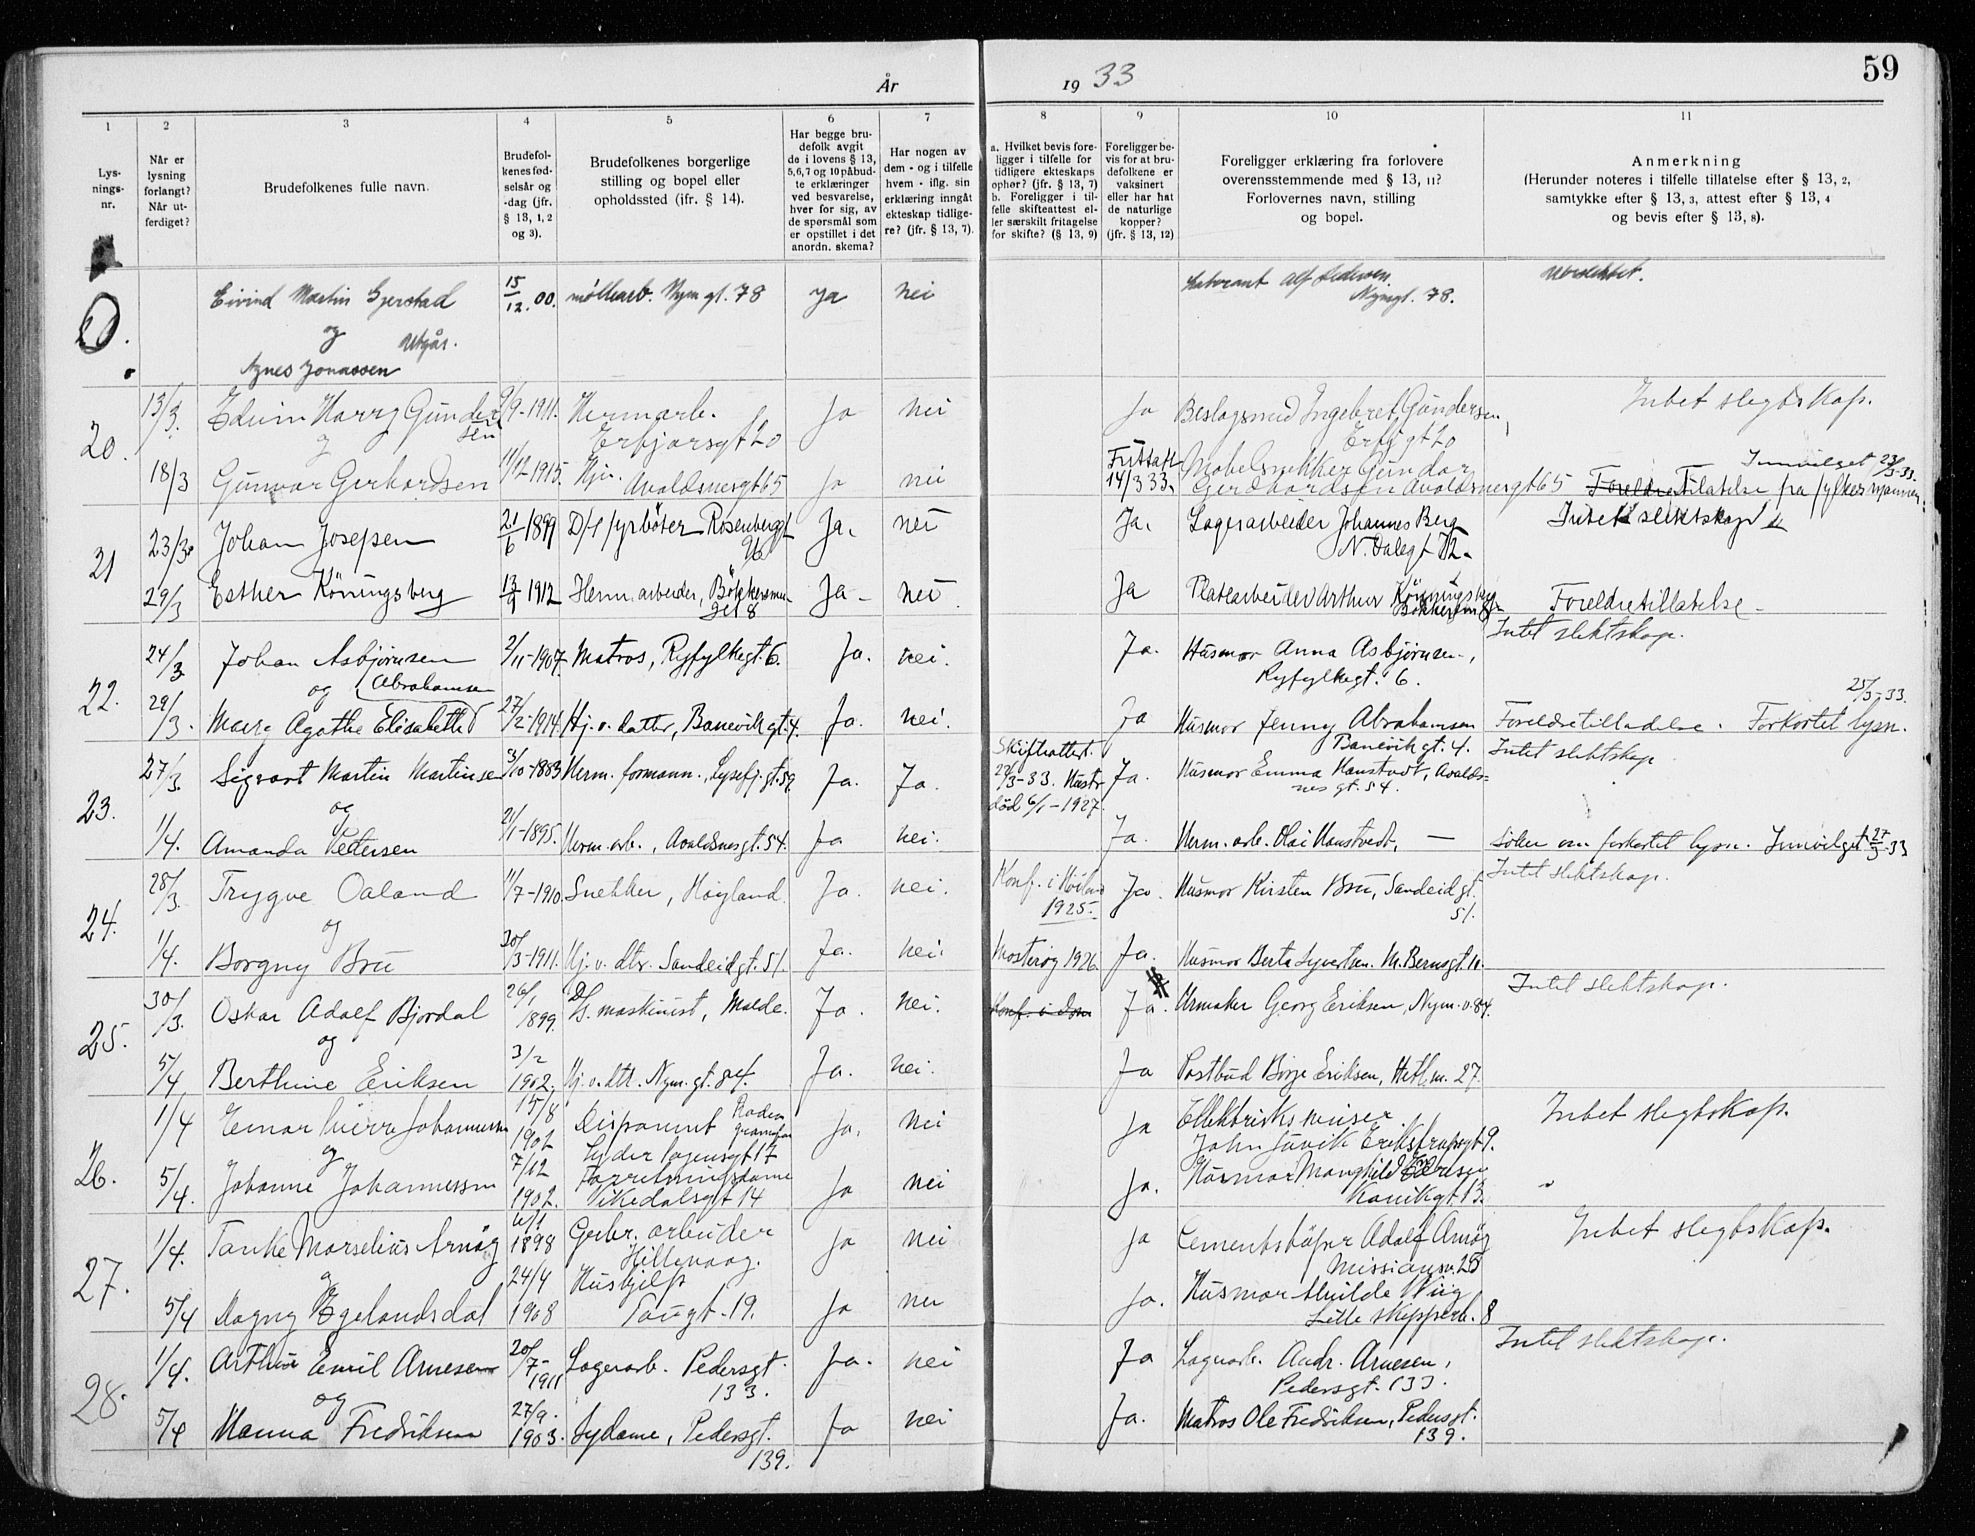 59
År 1933
1 2 3 4 5 6 7 8 9 10 11
Lys-
nings-
nr.
Når er
lysning
forlangt?
Når ut-
ferdiget?
Brudefolkenes fulle navn.
Brudefol-
kenes fød-
selsår og
-dag (jfr.
§ 13, 1, 2
og 3).
Brudefolkenes borgerlige
stilling og bopel eller
opholdssted (ifr. § 14).
Har begge bru-
defolk avgit
de i lovens § 13,
5,6,7 og 10 påbud-
te erklæringer
ved besvarelse,
hver for sig, av
de spørsmål som
er opstillet i det
anordn. skema?
Har nogen av
dem - og i tilfelle
hvem - iflg. sin
erklæring inngått
ekteskap tidlige-
re? (jfr. § 13, 7).
a. Hvilket bevis fore-
ligger i tilfelle for
tidligere ekteskaps
ophør? (jfr. § 13, 7)
b. Foreligger i til-
felle skifteattest el-
ler særskilt fritagelse
for skifte? (§ 13, 9)
Foreligger be-
vis for at bru-
defolkene er
vaksinert
eller har hat
de naturlige
kopper?
(jfr. § 13, 12)
Foreligger erklæring fra forlovere
overensstemmende med § 13, 11?
Forlovernes navn, stilling
og bopel.
Anmerkning
(Herunder noteres i tilfelle tillatelse efter § 13, 2,
samtykke efter § 13, 3, attest efter § 13, 4
og bevis efter § 13, 8).
0. Eivind Martin Gjerstad 15/12.00. møllearb. Nym gt. 78 ja nei Alf Pedersen,
Nymgt. 78.
og Utgår.
Agnes Jonassen
20. 13/3. Edvin Harry Gunder- 9/9-1911. Hermarb. Ja nei Ja Beslagsmed Ingebret Gundersen, Intet slegtskap.
sen Erfjorsgt 20 Erfjgt 20
og
18/3 Gunvor Gerhardsen 11/12-1915. Hjv. Ja nei Møbelsnekker Gunder Innvilget 23/3-33.
Avaldsnesgt 65 14/3 33. Gerdhardsen Avaldsnesgt 65 Foreldre Tilatelse fra fylkesmannen.
21 23/3. Johan Josefsen 21/6-1899 D/s fyrbøter Rosenberggt Ja. nei Ja. Lagerarbeider Johannes Berg Intet slektskap
96 N. Dalegt 72.
29/3 Esther Köningsberg 13/9 1912 Herm.arbeider, Bökkersmu- Ja - nei. Ja Platearbeider Arthur Königsberg Foreldretillatelse -
get 8 Bökkersm 8
22. 24/3 Johan Asbjørnsen 2/11-1907. Matros, Ryfylkegt. 6. Ja. nei. Ja. Husmor Anna Asbjørnsen, Intet slektskap.
Ryfylkegt. 6.
og Abrahamsen 25/3-33.
29/3. Mary Agathe Elisabethe 27/2-1914. Hj. v. datter, Banevik gt. 4. Ja. nei. Ja Husmor Jenny Abrahamsen Foreldretilladelse. Forkortet lysn.
Banevik gt. 4.
23. 27/3. Sigvart Martin Martinsen 3/10-1883 Herm. formann., Lysefj. gt. 59. Ja. Ja. Skifteattest. 27/3-33. Hustr. død 6/1-1927. Ja. Husmor Emma Haustvedt, Avalds- Intet slektskap
nes gt. 54.
og
1/4. Amanda Pedersen 21/1-1895. Herm. arb., Avaldsnesgt. 54. Ja nei. Ja. Herm. arb. Olai Haustvedt, — Søker om forkortet lysn. Innvilget 27/3-33
24. 28/3. Trygve Oaland 11/7-1910. Snekker, Høyland. Ja. nei. Konf. i Høiland 1925. Ja. Husmor Kirsten Bru, Sandeidgt. Intet slektskap.
51.
og
1/4. Borgny Bru 30/3-1911. Hj. v. dtr. Sandeidgt. 51. Ja. nei. Mosterøy 1926. Ja. Husmor Berta Syvertsen. M. Bernsgt. 10.
25. 30/3. Oskar Adolf Bjordal 26/1 1899. D/s. maskinist, Malde. Ja. nei. Ja. Urmaker Georg Eriksen, Nym. v. 84. Intet slektskap.
og
5/4. Berthine Eriksen 3/2 1902. Hj. v. dtr. Nym. gt. 84. Ja. nei. Ja Postbud Börje Eriksen, Hetl.m. 27.
26. 1/4 Einar Johannessen 15/8 1902 Disponent Ja. nei Ja Ellektriskmuser Intet slegtskap.
Lyder Sagensgt 17 John Juvik Erikstrupsgt 9.
og
5/4. Johanne Johannessen 7/12 1902. Forretningsdame Ja nei Ja. Husmor Manghild
Vikedalsgt 14 Kanikgt 13.
27. 1/4. Tanke Marselius Arnøy 6/1 1898 Gerbr. arbeider Ja nei Ja Cementstøper Adolf Arnøy Intet slegtskap.
Hillevaag. Missionsv. 25
og
5/4 Dagny Egelandsdal 24/4 1908 Hushjelp Ja nei Ja. Husmor Wiig
Taugt. 19. Lille Skipperb. 8
28. 1/4. Arthur Emil Arnesen 20/7-1911 Lagerarb. Pedersgt. Ja. nei Ja Lagerarb. Andr. Arnesen, Intet slektskap.
133. Pedersgt. 133.
og
5/4 Hanna Fredriksen 27/9. 1903. Sydame, Pedersgt. Ja nei Ja. Matros Ole Fredriksen, Pedersgt.
139. 139.